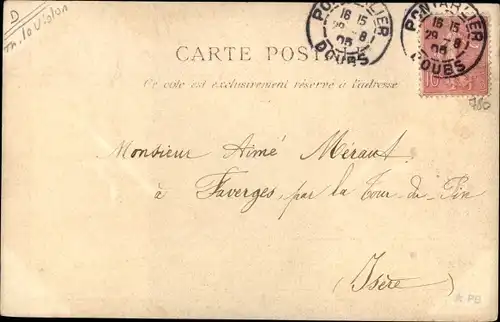 D
Th. Violon
PONTARLIER
16 15
29 - 8
06
DOUBS
PONTARLIER
16 15
29 - 8
06
DOUBS
CARTE POSTALE
Ce côté est exclusivement réservé à l'adresse
780
Monsieur Aimé Méraut
à Faverges, par la Tour-du-Pin
(Isère)